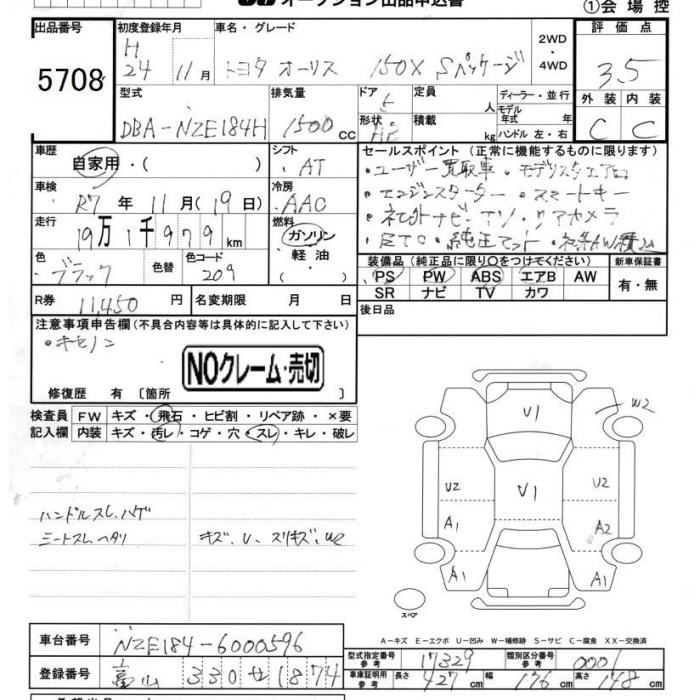 オークション出品申込書
①会場控
出品番号 初度登録年月 車名・グレード 2WD・4WD 評価点
5708 H24 11月 トヨタ オーリス 150X Sパッケージ 3.5
型式 排気量 ドア 定員 人 ディーラー・並行 外装 内装
DBA-NZE184H 1500cc 5 形状 積載 kg モデル年式 年式 ハンドル 左・右 C C
車歴 自家用・( ) シフト AT セールスポイント (正常に機能するものに限ります)
・ユーザー買取車 ・モデリスタエアロ
車検 R7年11月(19日) 冷房 AAC ・エンジンスターター ・スマートキー
走行 19万1千979km 燃料 ガソリン・軽油・( ) ・社外ナビ・TV・リアカメラ
・ETC ・純正マット ・社外AW積込
色 ブラック 色替 色コード 209
装備品 (純正品に限り○をつけてください) 新車保証書
PS PW ABS エアB AW 有・無
SR ナビ TV カワ
R券 11,450円 名変期限 月 日 後日品
注意事項申告欄 (不具合内容等は具体的に記入して下さい)
・キセノン
NOクレーム・売切
修復歴 有 [箇所 ]
検査員 FW キズ・飛石・ヒビ割・リペア跡・×要
記入欄 内装 キズ・汚レ・コゲ・穴・スレ・キレ・破レ
ハンドルスレ、ハゲ
シートスレ、ヘタリ キズ、U、スリキズ、W2
V1 W2
U2 V1 U2
A1 A2
A1 A1
スペア
A-キズ E-エクボ U-凹み W-補修跡 S-サビ C-腐食 XX-交換済
車台番号 NZE184-6000596
登録番号 富山 330 せ 1874
型式指定番号 参考 17329 類別区分番号 参考 0001
車庫証明用 参考 長さ 427cm 幅 176cm 高さ 148cm